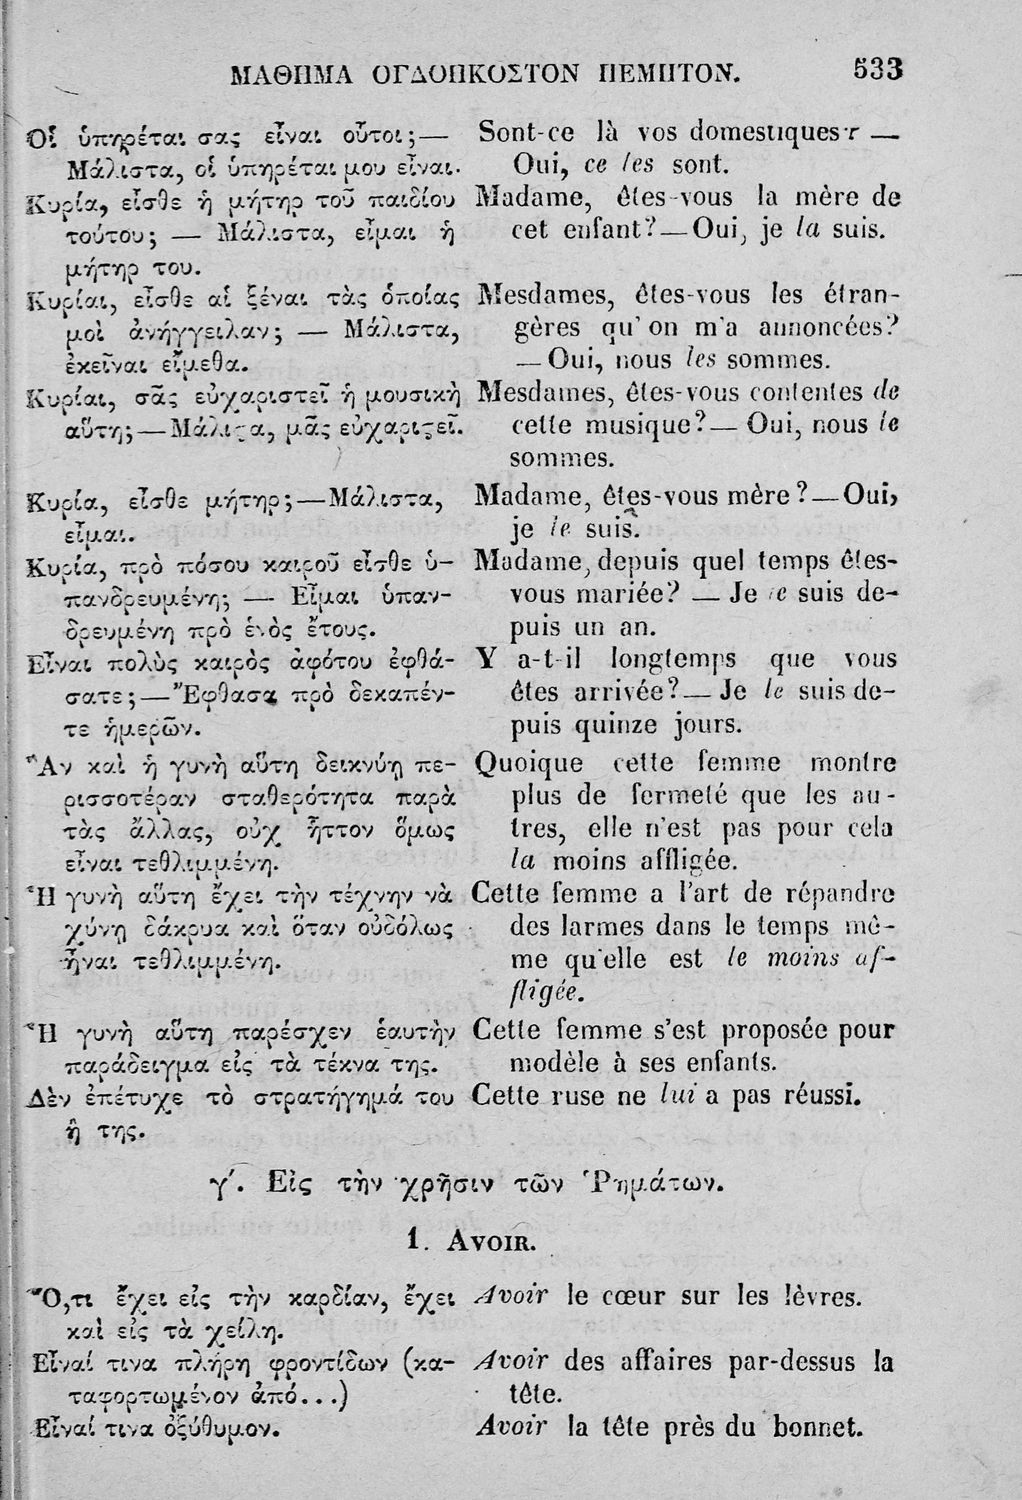 ΜΑΘΗΜΑ ΟΓΔΟΗΚΟΣΤΟΝ ΠΕΜΠΤΟΝ. 533
Οἱ ὑπηρέται σας εἶναι οὗτοι;—
Μάλιστα, οἱ ὑπηρέται μου εἶναι.
Κυρία, εἶσθε ἡ μήτηρ τοῦ παιδίου
τούτου; — Μάλιστα, εἶμαι ἡ
μήτηρ του.
Κυρίαι, εἶσθε αἱ ξέναι τὰς ὁποίας
μοὶ ἀνήγγειλαν; — Μάλιστα,
ἐκεῖναι εἴμεθα.
Κυρίαι, σᾶς εὐχαριστεῖ ἡ μουσικὴ
αὕτη;—Μάλιςα, μᾶς εὐχαριςεῖ.
Κυρία, εἶσθε μήτηρ;—Μάλιστα,
εἶμαι.
Κυρία, πρὸ πόσου καιροῦ εἶσθε ὑ-
πανδρευμένη; — Εἶμαι ὑπαν-
δρευμένη πρὸ ἑνὸς ἔτους.
Εἶναι πολὺς καιρὸς ἀφότου ἐφθά-
σατε;—Ἔφθασα πρὸ δεκαπέν-
τε ἡμερῶν.
Ἂν καὶ ἡ γυνὴ αὕτη δεικνύῃ πε-
ρισσοτέραν σταθερότητα παρὰ
τὰς ἄλλας, οὐχ ἧττον ὅμως
εἶναι τεθλιμμένη.
Ἡ γυνὴ αὕτη ἔχει τὴν τέχνην νὰ
χύνῃ δάκρυα καὶ ὅταν οὐδόλως
ἦναι τεθλιμμένη.
Ἡ γυνὴ αὕτη παρέσχεν ἑαυτὴν
παράδειγμα εἰς τὰ τέκνα της.
Δὲν ἐπέτυχε τὸ στρατήγημά του
ἢ της.
Sont-ce là vos domestiques? —
Oui, ce les sont.
Madame, êtes-vous la mère de
cet enfant?—Oui, je la suis.
Mesdames, êtes-vous les étran-
gères qu'on m'a annoncées?
—Oui, nous les sommes.
Mesdames, êtes-vous contentes de
cette musique?— Oui, nous le
sommes.
Madame, êtes-vous mère?—Oui,
je le suis.
Madame, depuis quel temps êtes-
vous mariée? — Je le suis de-
puis un an.
Y a-t-il longtemps que vous
êtes arrivée?— Je le suis de-
puis quinze jours.
Quoique cette femme montre
plus de fermeté que les au-
tres, elle n'est pas pour cela
la moins affligée.
Cette femme a l'art de répandre
des larmes dans le temps mê-
me qu'elle est le moins af-
fligée.
Cette femme s'est proposée pour
modèle à ses enfants.
Cette ruse ne lui a pas réussi.
γ΄. Εἰς τὴν χρῆσιν τῶν Ῥημάτων.
1. AVOIR.
Ὅ,τι ἔχει εἰς τὴν καρδίαν, ἔχει
καὶ εἰς τὰ χείλη.
Εἶναί τινα πλήρη φροντίδων (κα-
ταφορτωμένον ἀπό...)
Εἶναί τινα ὀξύθυμον.
Avoir le cœur sur les lèvres.
Avoir des affaires par-dessus la
tête.
Avoir la tête près du bonnet.